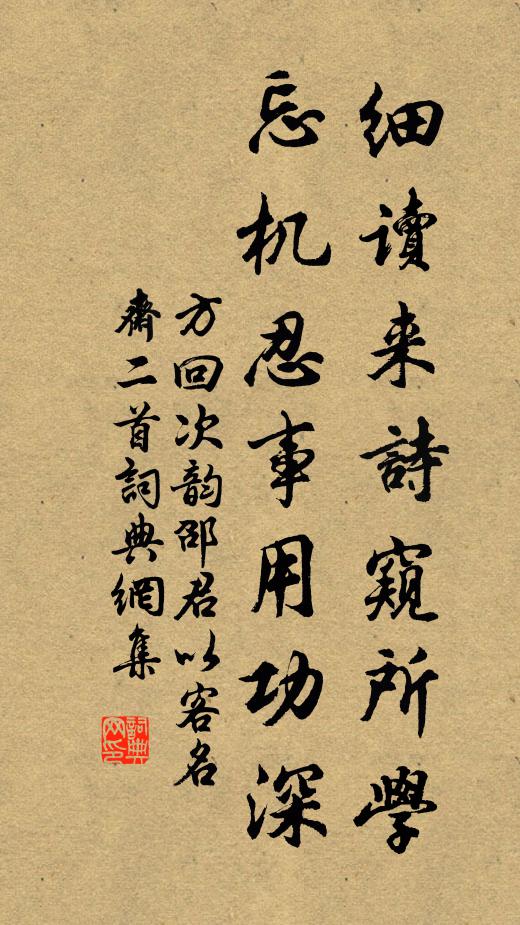 细读来詩窺所學
忘机忍事用功深
方回次韵邵君以客名
齋二首詞典網集
詞典网印